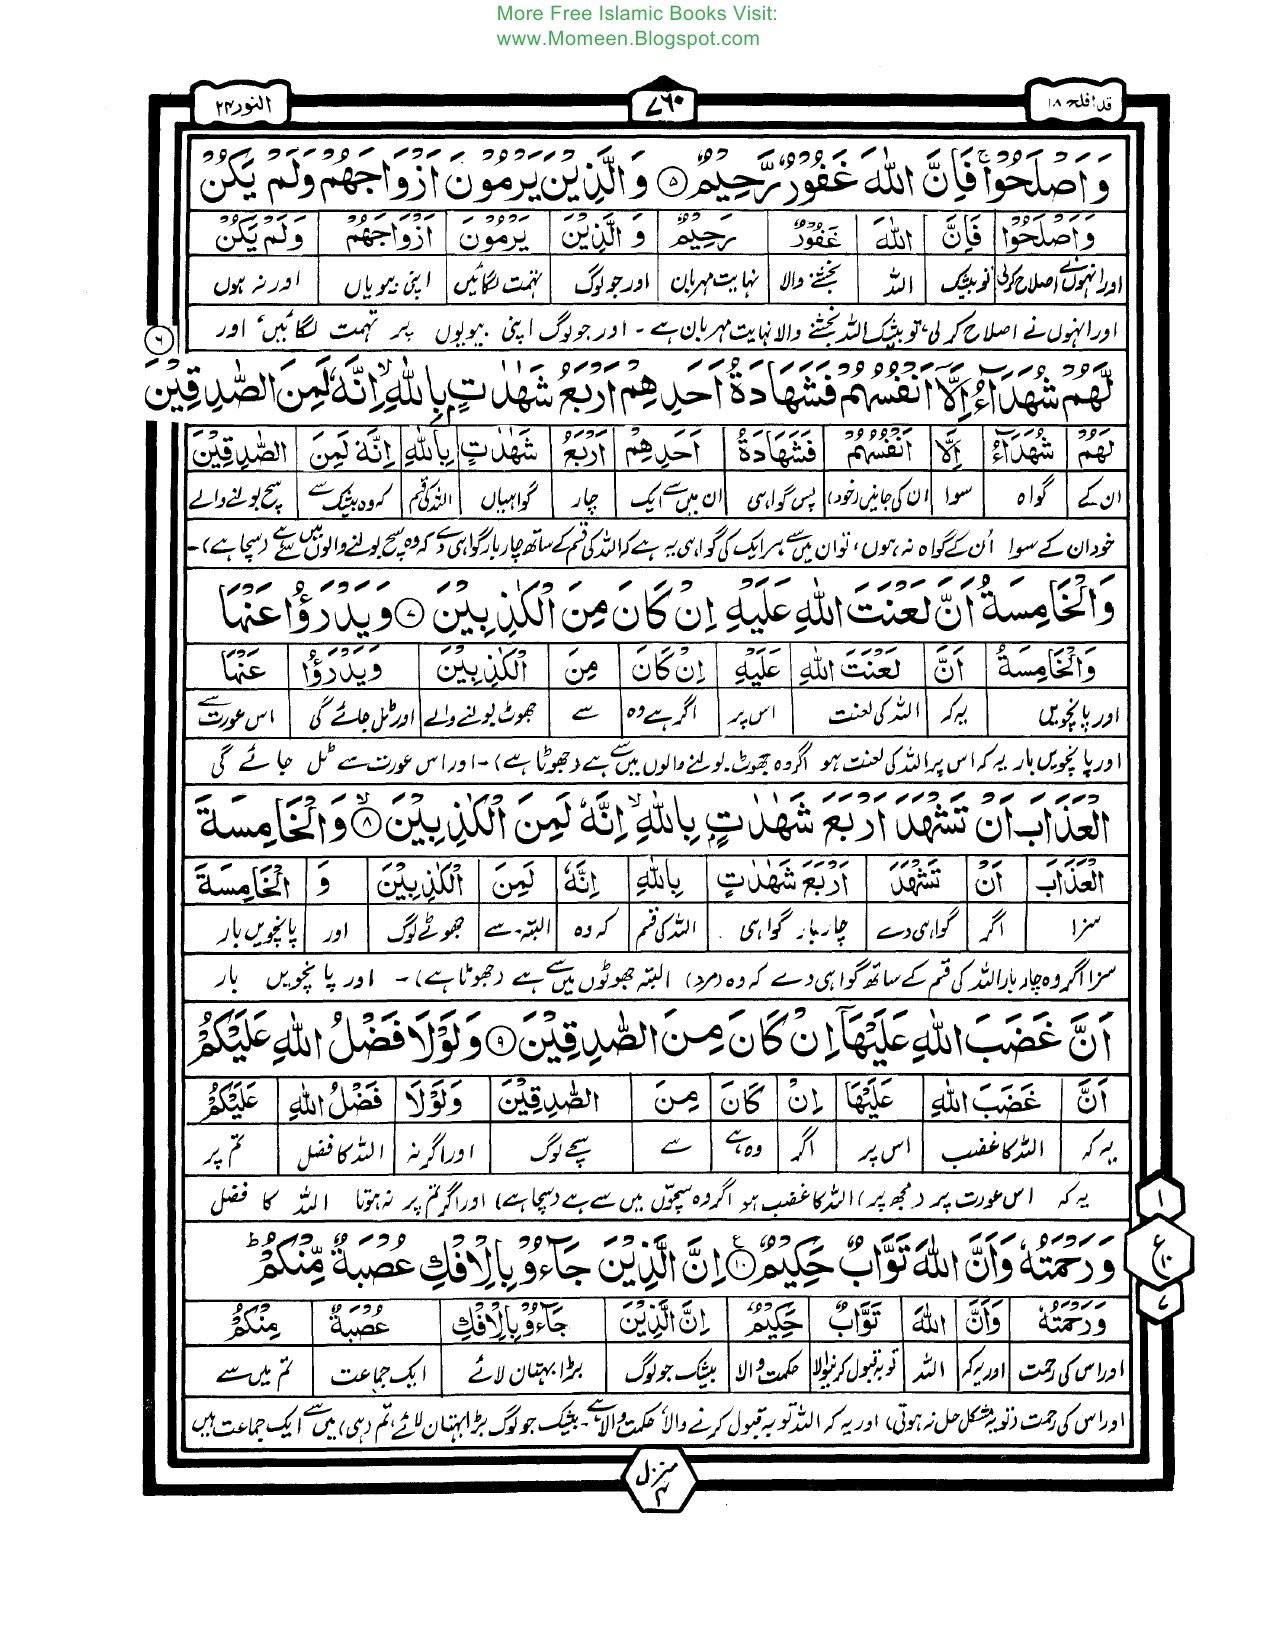 More Free Islamic Books Visit:
www.Momeen.Blogspot.com
قد افلح ۱۸
۷۶۰
النور ۲۴
وَاَصْلَحُوْا ۚ فَاِنَّ اللّٰهَ غَفُوْرٌ رَّحِيْمٌ ۝۵ وَالَّذِيْنَ يَرْمُوْنَ اَزْوَاجَهُمْ وَلَمْ يَكُنْ
وَاَصْلَحُوْا فَاِنَّ اللّٰهَ غَفُوْرٌ رَحِيْمٌ وَ الَّذِيْنَ يَرْمُوْنَ اَزْوَاجَهُمْ وَلَمْ يَكُنْ
اور انہوں نے اصلاح کر لی تو بیشک اللہ بخشنے والا نہایت مہربان اور جو لوگ تہمت لگائیں اپنی بیویاں اور نہ ہوں
اور انہوں نے اصلاح کر لی، تو بیشک اللہ بخشنے والا نہایت مہربان ہے ۔ اور جو لوگ اپنی بیویوں پر تہمت لگائیں، اور
۶
لَّهُمْ شُهَدَآءُ اِلَّاۤ اَنْفُسُهُمْ فَشَهَادَةُ اَحَدِهِمْ اَرْبَعُ شَهٰدٰتٍۭ بِاللّٰهِ ۙ اِنَّهٗ لَمِنَ الصّٰدِقِيْنَ
لَهُمْ شُهَدَآءُ اِلَّا اَنْفُسُهُمْ فَشَهَادَةُ اَحَدِهِمْ اَرْبَعُ شَهٰدٰتٍ بِاللّٰهِ اِنَّهٗ لَمِنَ الصّٰدِقِيْنَ
ان کے گواہ سوا ان کی جانیں (خود) پس گواہی ان میں سے ایک چار گواہیاں اللہ کی قسم کہ وہ بیشک سے سچ بولنے والے
خود ان کے سوا اُن کے گواہ نہ ہوں، تو ان میں سے ہر ایک کی گواہی یہ ہے کہ اللہ کی قسم کے ساتھ چار بار گواہی دے کہ وہ سچ بولنے والوں میں سے ہے (سچا ہے) ۔
وَالْخَامِسَةُ اَنَّ لَعْنَتَ اللّٰهِ عَلَيْهِ اِنْ كَانَ مِنَ الْكٰذِبِيْنَ ۝۷ وَيَدْرَؤُا عَنْهَا
وَالْخَامِسَةُ اَنَّ لَعْنَتَ اللّٰهِ عَلَيْهِ اِنْ كَانَ مِنَ الْكٰذِبِيْنَ وَيَدْرَؤُا عَنْهَا
اور پانچویں یہ کہ اللہ کی لعنت اس پر اگر ہے وہ سے جھوٹ بولنے والے اور ٹل جائے گی اس عورت سے
اور پانچویں بار یہ کہ اس پر اللہ کی لعنت ہو اگر وہ جھوٹ بولنے والوں میں سے ہے (جھوٹا ہے) ۔ اور اس عورت سے ٹل جائے گی
الْعَذَابَ اَنْ تَشْهَدَ اَرْبَعَ شَهٰدٰتٍۭ بِاللّٰهِ ۙ اِنَّهٗ لَمِنَ الْكٰذِبِيْنَ ۝۸ۙ وَالْخَامِسَةَ
الْعَذَابَ اَنْ تَشْهَدَ اَرْبَعَ شَهٰدٰتٍ بِاللّٰهِ اِنَّهٗ لَمِنَ الْكٰذِبِيْنَ وَ الْخَامِسَةَ
سزا اگر گواہی دے چار بار گواہی اللہ کی قسم کہ وہ البتہ سے جھوٹے لوگ اور پانچویں بار
سزا اگر وہ چار بار اللہ کی قسم کے ساتھ گواہی دے کہ وہ (مرد) البتہ جھوٹوں میں سے ہے (جھوٹا ہے) ۔ اور پانچویں بار
اَنَّ غَضَبَ اللّٰهِ عَلَيْهَاۤ اِنْ كَانَ مِنَ الصّٰدِقِيْنَ ۝۹ وَلَوْلَا فَضْلُ اللّٰهِ عَلَيْكُمْ
اَنَّ غَضَبَ اللّٰهِ عَلَيْهَا اِنْ كَانَ مِنَ الصّٰدِقِيْنَ وَلَوْلَا فَضْلُ اللّٰهِ عَلَيْكُمْ
یہ کہ اللہ کا غضب اس پر اگر وہ ہے سے سچے لوگ اور اگر نہ اللہ کا فضل تم پر
یہ کہ اس عورت پر (مجھ پر) اللہ کا غضب ہو اگر وہ سچوں میں سے ہے (سچا ہے) اور اگر تم پر نہ ہوتا اللہ کا فضل
۱
ع
۱۰
۷
وَرَحْمَتُهٗ وَاَنَّ اللّٰهَ تَوَّابٌ حَكِيْمٌ ۝۱۰ ع اِنَّ الَّذِيْنَ جَآءُوْ بِالْاِفْكِ عُصْبَةٌ مِّنْكُمْ ؕ
وَرَحْمَتُهٗ وَاَنَّ اللّٰهَ تَوَّابٌ حَكِيْمٌ اِنَّ الَّذِيْنَ جَآءُوْ بِالْاِفْكِ عُصْبَةٌ مِنْكُمْ
اور اس کی رحمت اور یہ کہ اللہ توبہ قبول کرنیوالا حکمت والا بیشک جو لوگ بڑا بہتان لائے ایک جماعت تم میں سے
اور اس کی رحمت (تو یہ مشکل حل نہ ہوتی) اور یہ کہ اللہ توبہ قبول کرنے والا، حکمت والا ہے ۔ بیشک جو لوگ بڑا بہتان لائے، تم (ہی) میں سے ایک جماعت ہیں
منزل ۴